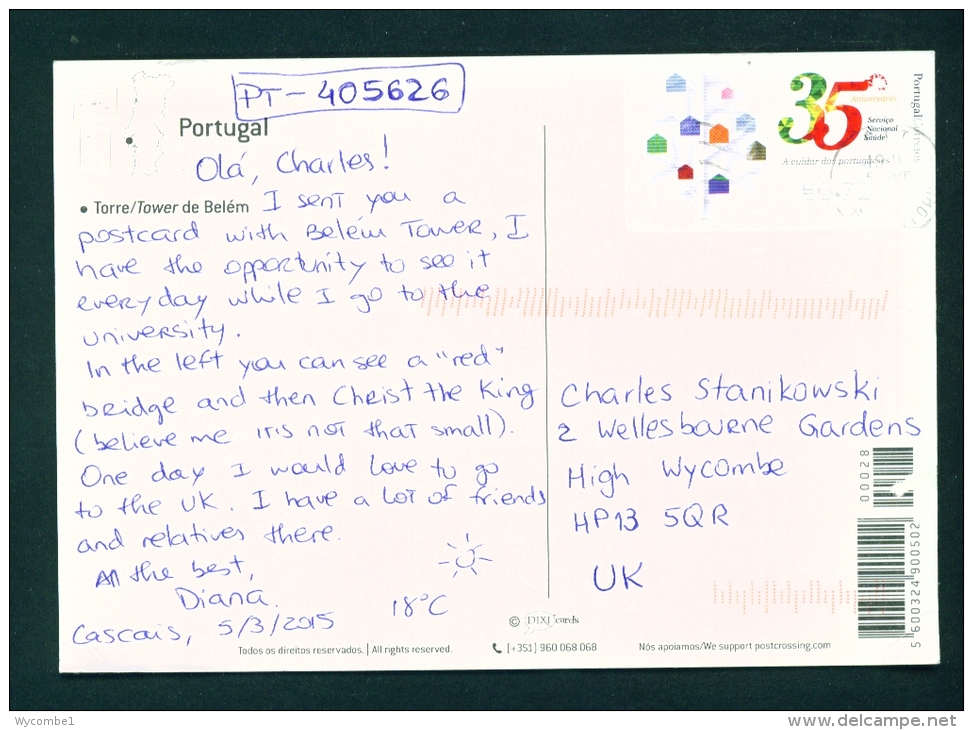 PT-405626
Portugal
Olá, Charles!
• Torre/Tower de Belém I sent you a
postcard with Belém Tower, I
have the opportunity to see it
everyday while I go to the
university.
In the left you can see a "red"
bridge and then Christ the King
(believe me it is not that small).
One day I would love to go
to the UK. I have a lot of friends
and relatives there.
All the best,
Diana.
18°C
Cascais, 5/3/2015
35
Aniversário
Serviço
Nacional
Saúde
A cuidar dos portugueses
Portugal correios
Charles Stanikowski
2 Wellesbourne Gardens
High Wycombe
HP13 5QR
UK
00028
5 600324 900502
© DIXI cards
Todos os direitos reservados. | All rights reserved.
(+351) 960 068 068
Nós apoiamos/We support postcrossing.com
Wycombe1
www.delcampe.net